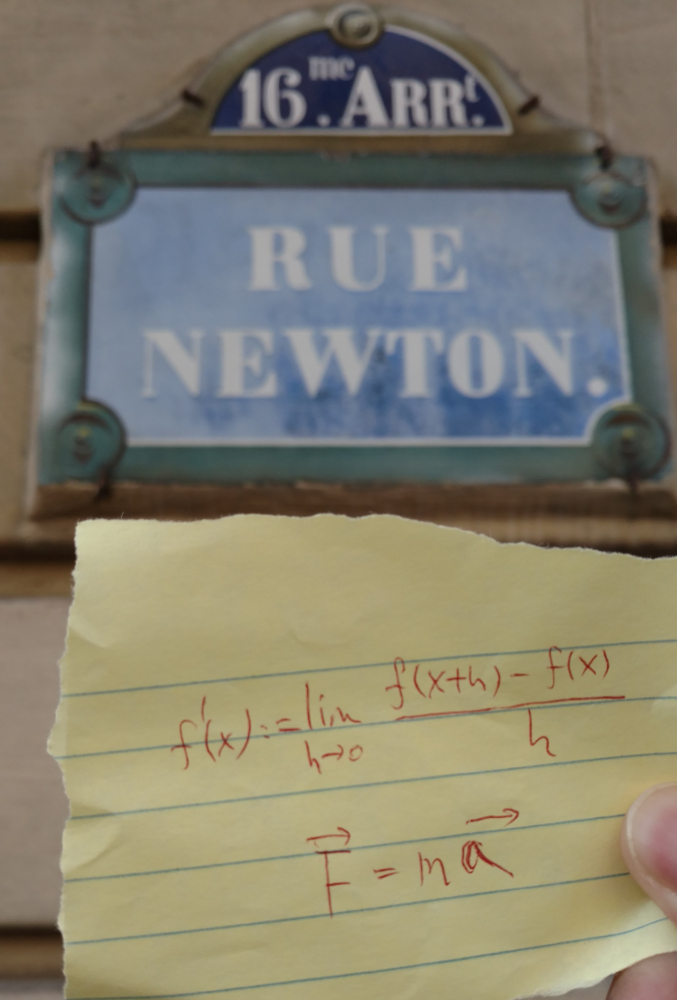 16.me ARRt.
RUE
NEWTON.
f'(x) := lim h→0 f(x+h) - f(x) / h
F⃗ = m a⃗